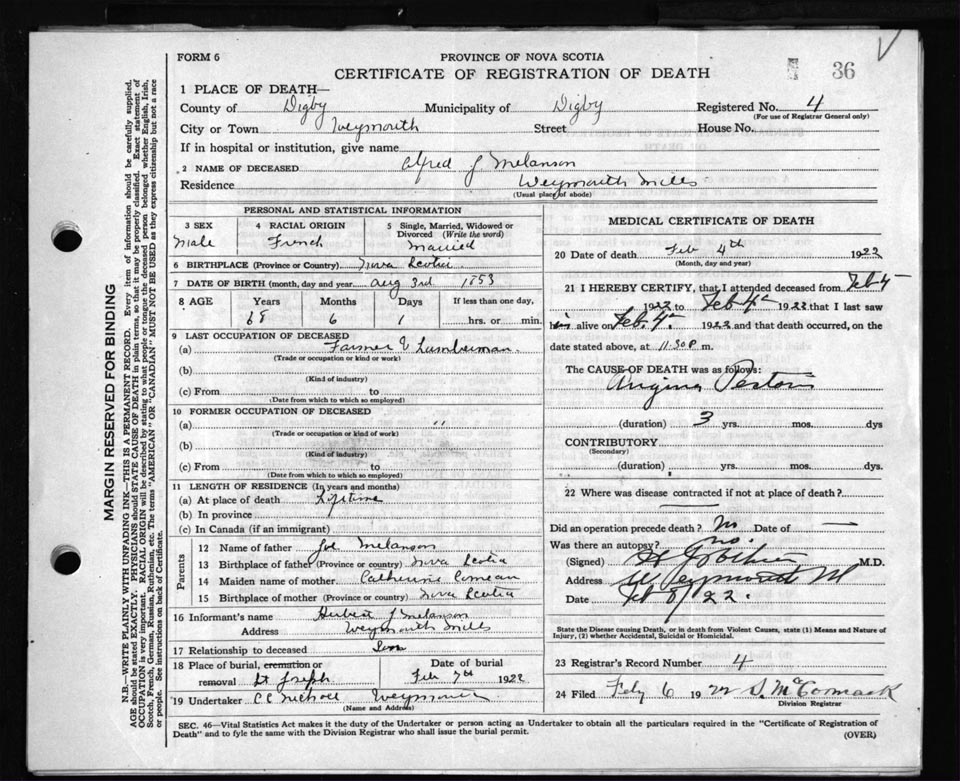 FORM 6
PROVINCE OF NOVA SCOTIA
CERTIFICATE OF REGISTRATION OF DEATH
36
1 PLACE OF DEATH—
County of Digby Municipality of Digby Registered No. 4
(For use of Registrar General only)
City or Town Weymouth Street House No.
If in hospital or institution, give name
2 NAME OF DECEASED Alfred J. Melanson
Residence Weymouth Mills
(Usual place of abode)
PERSONAL AND STATISTICAL INFORMATION
3 SEX 4 RACIAL ORIGIN 5 Single, Married, Widowed or Divorced (Write the word)
Male French Married
6 BIRTHPLACE (Province or Country) Nova Scotia
7 DATE OF BIRTH (month, day and year) Aug 3rd 1853
8 AGE Years Months Days If less than one day,
68 6 1 hrs. or min.
9 LAST OCCUPATION OF DECEASED
(a) Farmer & Lumberman
(Trade or occupation or kind or work)
(b)
(Kind of industry)
(c) From to
(Date from which to which so employed)
10 FORMER OCCUPATION OF DECEASED
(a) "
(Trade or occupation or kind of work)
(b)
(Kind of industry)
(c) From to
(Date from which to which so employed)
11 LENGTH OF RESIDENCE (In years and months)
(a) At place of death Lifetime
(b) In province
(c) In Canada (if an immigrant)
Parents
12 Name of father Joe Melanson
13 Birthplace of father (Province or country) Nova Scotia
14 Maiden name of mother Catherine Comeau
15 Birthplace of mother (Province or country) Nova Scotia
16 Informant's name Hubert J Melanson
Address Weymouth Mills
17 Relationship to deceased Son
18 Place of burial, cremation or removal St Joseph Date of burial Feb 7th 1922
19 Undertaker Weymouth
(Name and Address)
MEDICAL CERTIFICATE OF DEATH
20 Date of death Feb 4th 1922
(Month, day and year)
21 I HEREBY CERTIFY, that I attended deceased from Feb 4
1922 to Feb 4th 1922 that I last saw
him alive on Feb 4th 1922 and that death occurred, on the
date stated above, at 11.30 P m.
The CAUSE OF DEATH was as follows:
Angina Pectoris
(duration) 3 yrs. mos. dys
CONTRIBUTORY
(Secondary)
(duration) yrs. mos. dys.
22 Where was disease contracted if not at place of death?
Did an operation precede death? No Date of —
Was there an autopsy? no.
(Signed) M.D.
Address Weymouth
Date Feb 8/22.
State the Disease causing Death, or in death from Violent Causes, state (1) Means and Nature of Injury, (2) whether Accidental, Suicidal or Homicidal.
23 Registrar's Record Number 4
24 Filed Feby 6 1922 S. McCormack
Division Registrar
SEC. 46—Vital Statistics Act makes it the duty of the Undertaker or person acting as Undertaker to obtain all the particulars required in the "Certificate of Registration of
Death" and to fyle the same with the Division Registrar who shall issue the burial permit.
(OVER)
MARGIN RESERVED FOR BINDING
N.B.—WRITE PLAINLY WITH UNFADING INK—THIS IS A PERMANENT RECORD. Every item of information should be carefully supplied.
AGE should be stated EXACTLY. PHYSICIANS should STATE CAUSE OF DEATH in plain terms, so that it may be properly classified. Exact statement of
OCCUPATION is very important. RACIAL ORIGIN will be described by stating to what people or tongue the deceased person belonged whether English, Irish,
Scotch, French, German, Russian, Ruthenian, etc. The terms "AMERICAN" OR "CANADIAN" MUST NOT BE USED as they express citizenship but not a race
or people. See instructions on back of Certificate.